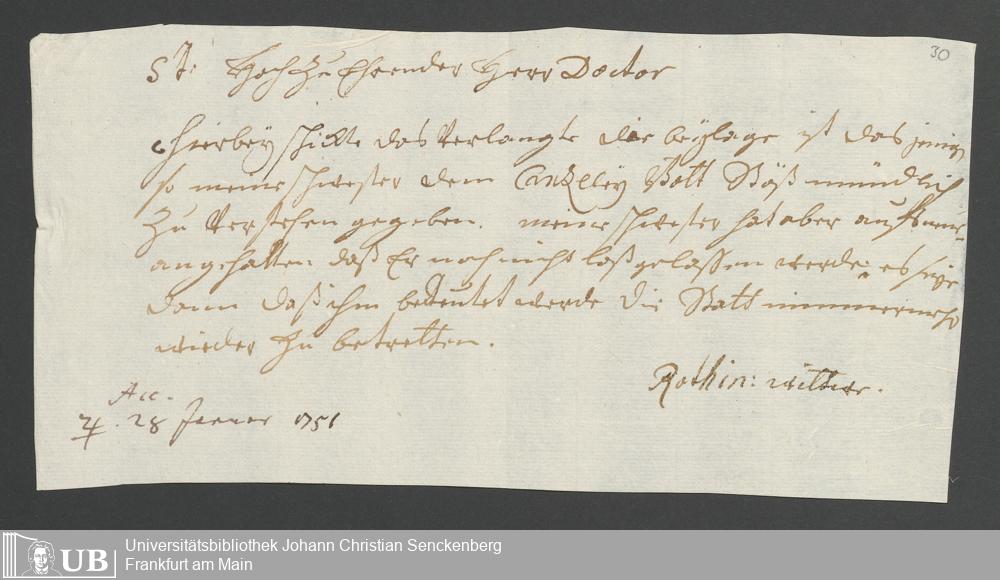 30
St: HochzuEhrender Herr Doctor
hierbey schicke das Verlangte die beylage ist das jenige
so meine schwester dem Cantzeley Bott Böß mündlich
zu Verstehen gegeben. meine schwester hat aber auffs neue
angehalten daß Er noch nicht loßgelassen werde, es seye
dann daß ihm bedeutet werde die Statt nimmermehr
wieder zu betretten.
Rothin: wittwe.
Acc.
♃. 28 Januar 1751
UB
Universitätsbibliothek Johann Christian Senckenberg
Frankfurt am Main